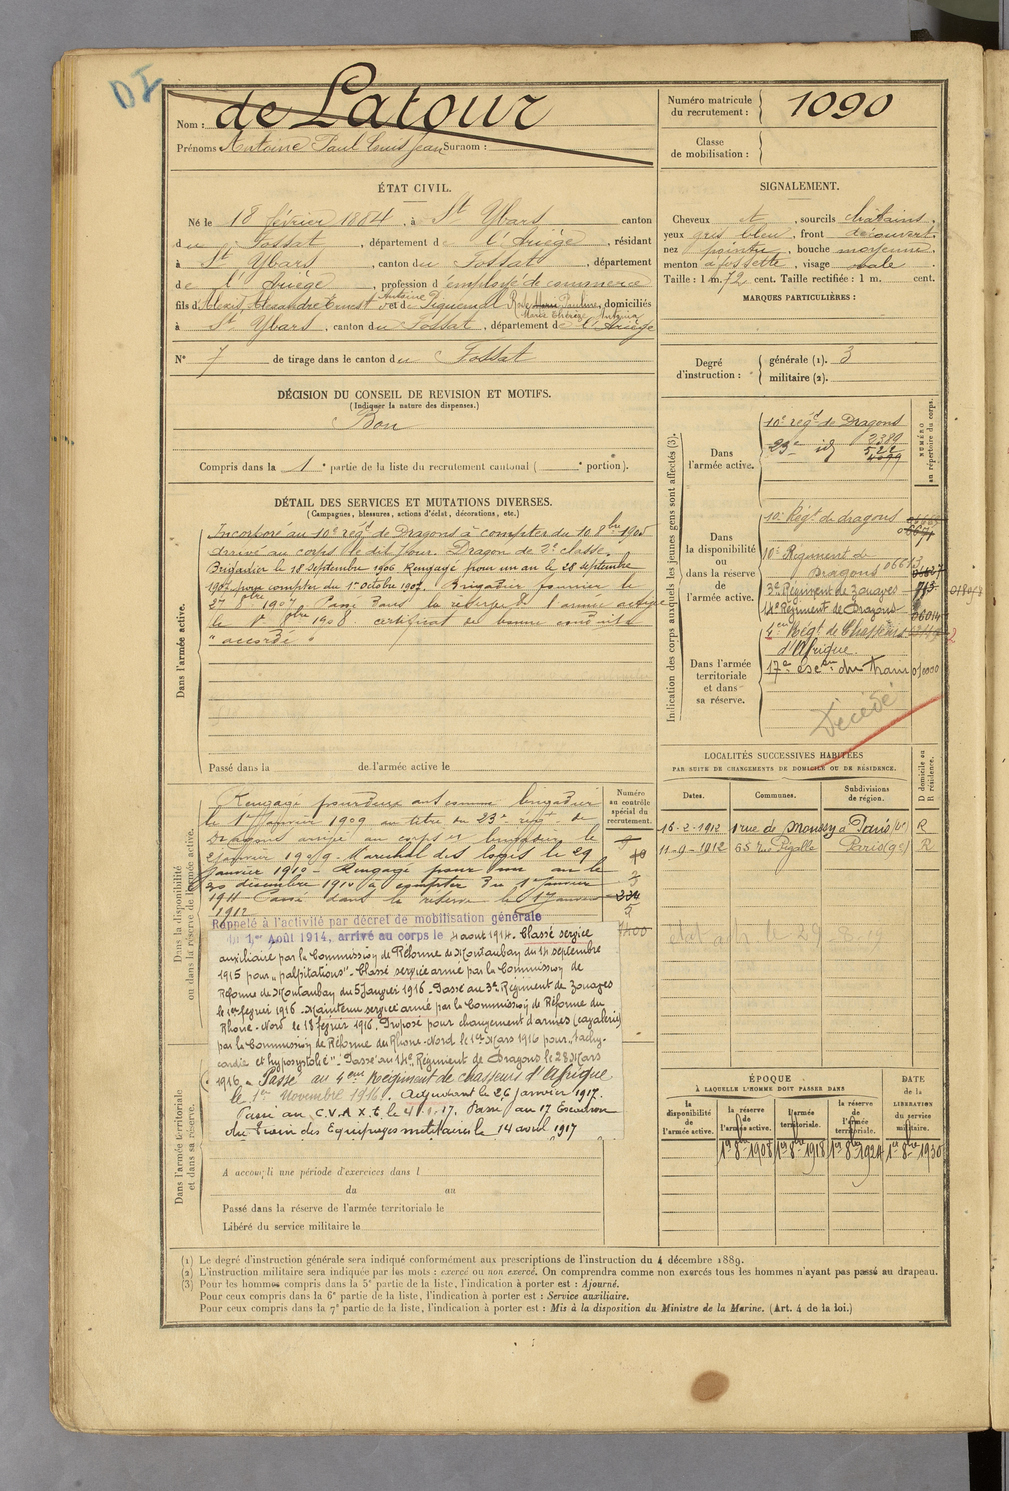 DI
Nom : de Latour
Prénoms Antoine Paul Louis Jean Surnom :
Numéro matricule
du recrutement : 1090
Classe
de mobilisation :
ÉTAT CIVIL.
Né le 18 février 1884, à St Ybars canton
du Fossat, département de l'Ariège, résidant
à St Ybars, canton du Fossat, département
de l'Ariège, profession d'employé de commerce
fils d'Alexis, Alexandre Ernest Antoine et de Piquemal Rose Marie Pauline, domiciliés
Marie Thérèse Antonia
à St Ybars, canton du Fossat, département de l'Ariège
N° 7 de tirage dans le canton du Fossat
DÉCISION DU CONSEIL DE REVISION ET MOTIFS.
(Indiquer la nature des dispenses.)
Bon
Compris dans la 1e partie de la liste du recrutement cantonal ( e portion).
DÉTAIL DES SERVICES ET MUTATIONS DIVERSES.
(Campagnes, blessures, actions d'éclat, décorations, etc.)
Dans l'armée active.
Incorporé au 10e régt de Dragons à compter du 10 8bre 1905
Arrivé au corps le dit jour. Dragon de 2e classe.
Brigadier le 18 septembre 1906 Rengagé pour un an le 28 septembre
1907 pour compter du 1er octobre 1907. Brigadier fourrier le
27 1907. Passé dans la réserve de l'armée active
le 1er 8bre 1908 certificat de bonne conduite
"accordé"
Passé dans la de l'armée active le
Dans la disponibilité
ou dans la réserve de l'armée active.
Numéro
au contrôle
spécial du
recrutement.
Rengagé pour deux ans comme brigadier
le 1er janvier 1909 au titre du 23e régt de
Dragons arrivé au corps et brigadier le
2 janvier 1909. Maréchal des logis le 29
janvier 1910 - Rengagé pour un an le
20 décembre 1910 à compter du 1er janvier
1911 - Passé dans la réserve le 1er janvier
1912
Rappelé à l'activité par décret de mobilisation générale
du 1er Août 1914, arrivé au corps le 4 aout 1914. Classé service
auxiliaire par la Commission de Réforme de Montauban du 14 septembre
1915 pour "palpitations". Classé service armé par la Commission de
Réforme de Montauban du 5 Janvier 1916. Passé au 3e Régiment de Zouaves
le 1er février 1916. Maintenu service armé par la Commission de Réforme du
Rhône-Nord le 18 février 1916. Proposé pour changement d'armes (cavalerie)
par la Commission de Réforme du Rhône-Nord le 1er Mars 1916 pour "tachy-
cardie et hyposystolie". Passé au 14e Régiment de Dragons le 28 Mars
1916. Passé au 4eme Régiment de chasseurs d'Afrique
le 1er Novembre 1916. Adjudant le 26 janvier 1917.
Passé au C.V.A.X.t. le 17. Passé au 17 Escadron
du Train des Equipages militaires le 14 avril 1917
Dans l'armée territoriale
et dans sa réserve.
A accompli une période d'exercices dans l
du au
Passé dans la réserve de l'armée territoriale le
Libéré du service militaire le
SIGNALEMENT.
Cheveux et, sourcils châtains,
yeux gris bleu, front découvert,
nez pointu, bouche moyenne,
menton à fossette, visage ovale
Taille : 1 m. 72 cent. Taille rectifiée : 1 m. cent.
MARQUES PARTICULIÈRES :
Degré
d'instruction :
générale (1). 3
militaire (2).
Indication des corps auxquels les jeunes gens sont affectés (3).
NUMÉRO
au répertoire du corps.
Dans
l'armée active.
10e régt de Dragons
2389
23e id 522
Dans
la disponibilité
ou
dans la réserve
de
l'armée active.
10e Régt de dragons
10e Régiment de
Dragons
3e Régiment de Zouaves
14e Régiment de Dragons 06014
4eme Régt de Chasseurs
d'Afrique.
Dans l'armée
territoriale
et dans
sa réserve.
17e escon du train 010000
Décédé
LOCALITÉS SUCCESSIVES HABITÉES
PAR SUITE DE CHANGEMENTS DE DOMICILE OU DE RÉSIDENCE.
Dates. Communes. Subdivisions
de région.
D domicile ou
R résidence.
16-2-1912 1 rue de Moussy à Paris (4e) R
11-9-1912 65 rue Pigalle Paris (9e) R
ÉPOQUE
À LAQUELLE L'HOMME DOIT PASSER DANS
DATE
de la
LIBÉRATION
du service
militaire.
la
disponibilité
de
l'armée active.
la réserve
de
l'armée active.
l'armée
territoriale.
la réserve
de
l'armée
territoriale.
1er 8bre 1908 1er 8bre 1918 1er 8bre 1924 1er 8bre 1930
(1) Le degré d'instruction générale sera indiqué conformément aux prescriptions de l'instruction du 4 décembre 1889.
(2) L'instruction militaire sera indiquée par les mots : exercé ou non exercé. On comprendra comme non exercés tous les hommes n'ayant pas passé au drapeau.
(3) Pour les hommes compris dans la 5e partie de la liste, l'indication à porter est : Ajourné.
Pour ceux compris dans la 6e partie de la liste, l'indication à porter est : Service auxiliaire.
Pour ceux compris dans la 7e partie de la liste, l'indication à porter est : Mis à la disposition du Ministre de la Marine. (Art. 4 de la loi.)